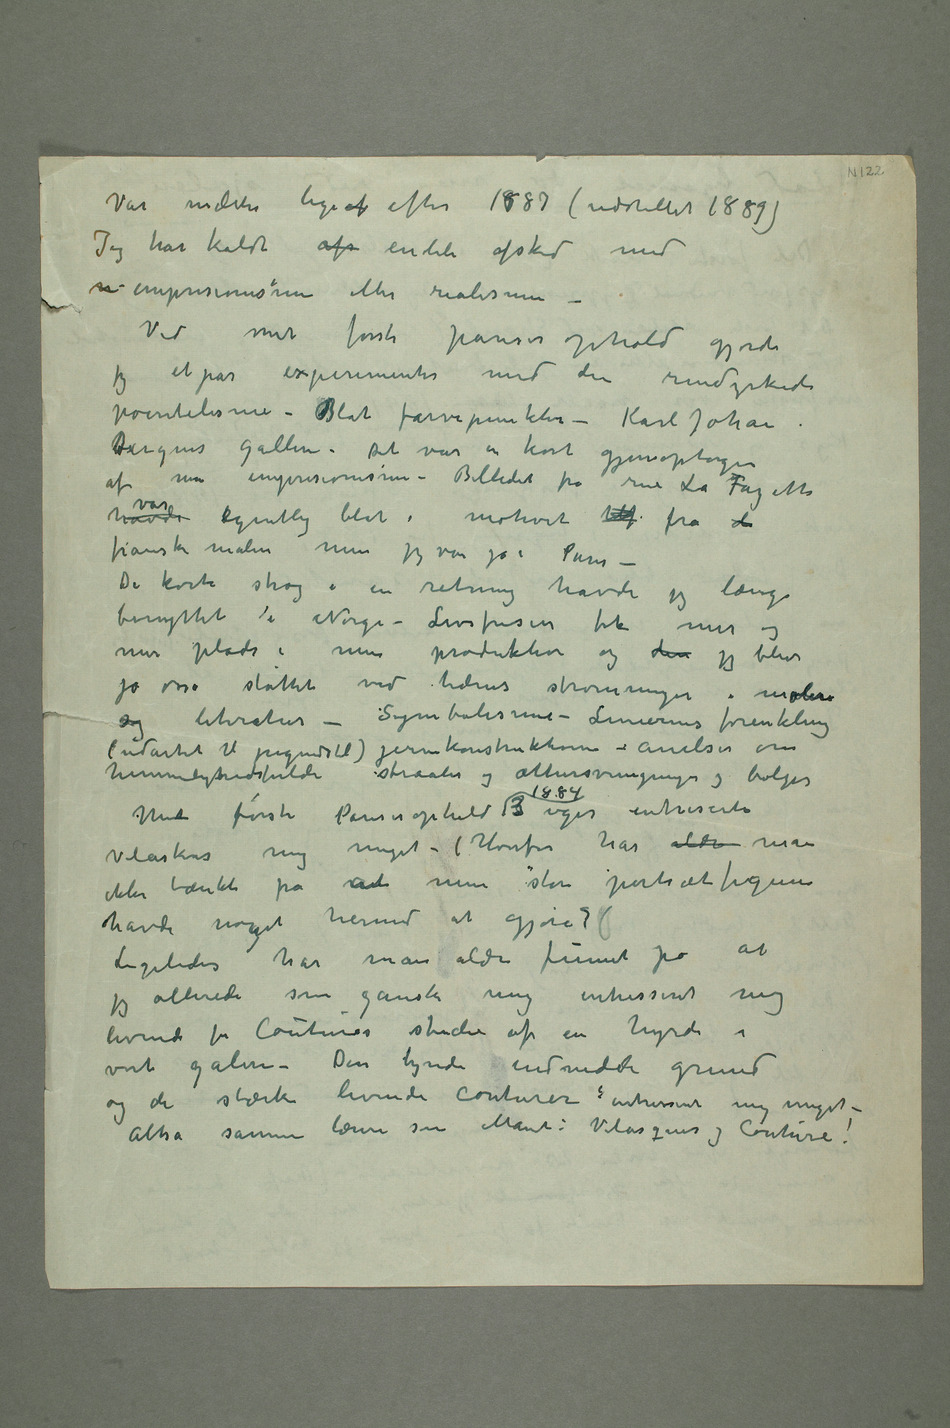 N 122
Vår malt lige af efter 1887 (udstillet 1889)
Jeg har kaldt afs endeli afsked med
n impresionismen eller realismen –
Ved mit første pariserophold gjorde
jeg et par experimenter med den rendyrkede
pointelisme – Blåt farvepunkter – Karl Johan
Bergens galleri. Det var en kort gjenoptagen
af min impresionisme – Billedet fra rue La Fayette
havde var egentlig blåt i motivet fra d
franske malere men jeg var jo i Paris –
De korte strøg i en retning havde jeg længe
benyttet i Norge – Livsfrisen fik mer og
mer plads i min produktion og den jeg blev
jo osså støttet ved tidens strømninger i maleri
og literatur – Symbolisme – Linjernes forenkling
(udartet til jugendstil) jernkonstruktionen – anelser om
hemmelighedsfulde straaler og æthersvingninger og bølger
Med første Pariserophold 3 uger 1884 intreserte
Velaskes mig meget – (Hvorfor har aldri man
ikke tænkt på at mine store portrætfigurer
havde noget hermed at gjøre?(
Ligeledes har man aldri funnet på at
jeg allerede som ganske ung intresseret mig
levende for Coutures studie af en hyrde i
vort galeri – Den tynde indnedde grund
og de stærke levende conturer intreseret mig meget –
Altså samme lærere som Manet: Velasques og Couture!